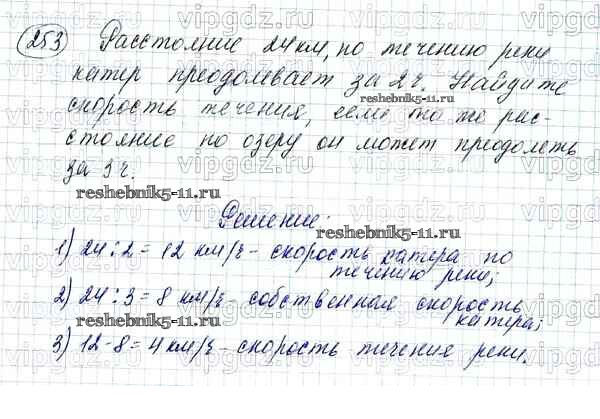 253 Расстояние 24 км, по течению реки
катер преодолевает за 2 ч. Найдите
скорость течения, если то же рас-
стояние по озеру он может преодолеть
за 3 ч.
Решение:
1) 24 : 2 = 12 км/ч - скорость катера по
течению реки;
2) 24 : 3 = 8 км/ч - собственная скорость
катера;
3) 12 - 8 = 4 км/ч - скорость течения реки.
reshebnik5-11.ru
reshebnik5-11.ru
reshebnik5-11.ru
reshebnik5-11.ru
reshebnik5-11.ru
vipgdz.ru